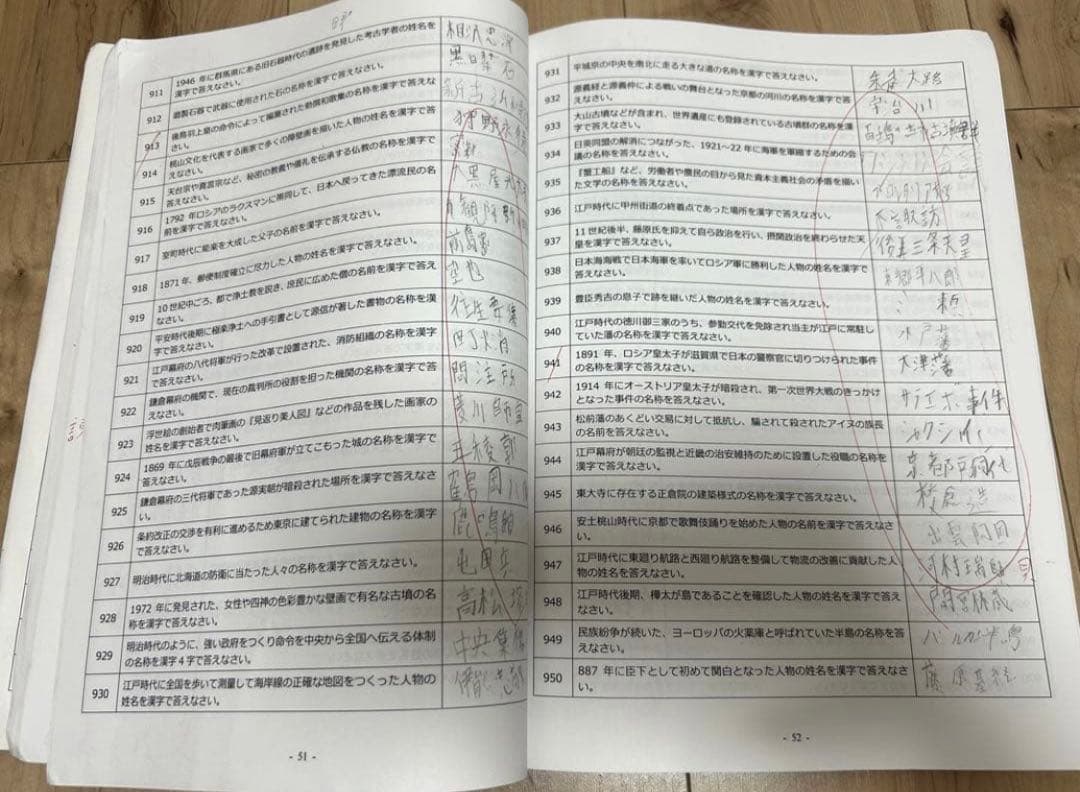 911 1946 年に群馬県にある旧石器時代の遺跡を発見した考古学者の姓名を
漢字で答えなさい。
相沢忠洋
912 磨製石器で武器に使用された石の名称を漢字で答えなさい。
黒曜石
913 後鳥羽上皇の命令によって編纂された勅撰和歌集の名称を漢字で答えな
さい。
新古
914 桃山文化を代表する画家で多くの障壁画を描いた人物の姓名を漢字で
答えなさい。
狩野永
915 天台宗や真言宗など、秘密の教義や儀礼を伝承する仏教の名称を漢字で
答えなさい。
密教
916 1792 年ロシアのラクスマンに同行して、日本へ戻ってきた漂流民の名
前を漢字で答えなさい。
大黒屋光
917 室町時代に能楽を大成した父子の名前を漢字で答えなさい。
観阿弥
918 1871 年、郵便制度確立に尽力した人物の姓名を漢字で答えなさい。
前島密
919 10 世紀中ごろ、都で浄土教を説き、庶民に広めた僧の名前を漢字で答え
なさい。
空也
920 平安時代後期に極楽浄土への手引書として源信が著した書物の名称を漢
字で答えなさい。
往生要集
921 江戸幕府の八代将軍が行った改革で設置された、消防組織の名称を漢字
で答えなさい。
町火消
922 鎌倉幕府の機関で、現在の裁判所の役割を担った機関の名称を漢字で答
えなさい。
問注所
923 浮世絵の創始者で肉筆画の『見返り美人図』などの作品を残した画家の
姓名を漢字で答えなさい。
菱川師宣
924 1869 年に戊辰戦争の最後で旧幕府軍が立てこもった城の名称を漢字で
答えなさい。
五稜郭
925 鎌倉幕府の三代将軍であった源実朝が暗殺された場所を漢字で答えなさ
い。
鶴岡八
926 条約改正の交渉を有利に進めるため東京に建てられた建物の名称を漢字
で答えなさい。
鹿鳴館
927 明治時代に北海道の防衛に当たった人々の名称を漢字で答えなさい。
屯田兵
928 1972 年に発見された、女性や四神の色彩豊かな壁画で有名な古墳の名
称を漢字で答えなさい。
高松塚
929 明治時代のように、強い政府をつくり命令を中央から全国へ伝える体制
の名称を漢字 4 字で答えなさい。
中央集
930 江戸時代に全国を歩いて測量して海岸線の正確な地図をつくった人物の
姓名を漢字で答えなさい。
伊能忠敬
- 51 -
931 平城京の中央を南北に走る大きな道の名称を漢字で答えなさい。
朱雀大路
932 源義経と源義仲による戦いの舞台となった京都の河川の名称を漢字で答
えなさい。
宇治川
933 大山古墳などが含まれ、世界遺産にも登録されている古墳群の名称を漢
字で答えなさい。
百舌鳥・古市古墳群
934 日英同盟の解消につながった、1921~22 年に海軍を軍縮するための会
議の名称を答えなさい。
ワシントン会議
935 『蟹工船』など、労働者や農民の目から見た資本主義社会の矛盾を描い
た文学の名称を答えなさい。
936 江戸時代に甲州街道の終着点であった場所を漢字で答えなさい。
下諏訪
937 11 世紀後半、藤原氏を抑えて自ら政治を行い、摂関政治を終わらせた天
皇を漢字で答えなさい。
後三条天皇
938 日本海海戦で日本海軍を率いてロシア軍に勝利した人物の姓名を漢字で
答えなさい。
東郷平八郎
939 豊臣秀吉の息子で跡を継いだ人物の姓名を漢字で答えなさい。
頼
940 江戸時代の徳川御三家のうち、参勤交代を免除され当主が江戸に常駐し
ていた藩の名称を漢字で答えなさい。
水戸藩
941 1891 年、ロシア皇太子が滋賀県で日本の警察官に切りつけられた事件
の名称を漢字で答えなさい。
大津藩
942 1914 年にオーストリア皇太子が暗殺され、第一次世界大戦のきっかけ
となった事件の名称を答えなさい。
サラエボ事件
943 松前藩のあくどい交易に対して抵抗し、騙されて殺されたアイヌの族長
の名前を答えなさい。
シャクシャイン
944 江戸幕府が朝廷の監視と近畿の治安維持のために設置した役職の名称を
漢字で答えなさい。
京都所司代
945 東大寺に存在する正倉院の建築様式の名称を漢字で答えなさい。
校倉造
946 安土桃山時代に京都で歌舞伎踊りを始めた人物の名前を漢字で答えなさ
い。
出雲阿国
947 江戸時代に東廻り航路と西廻り航路を整備して物流の改善に貢献した人
物の姓名を答えなさい。
河村瑞賢
948 江戸時代後期、樺太が島であることを確認した人物の姓名を漢字で答え
なさい。
間宮林蔵
949 民族紛争が続いた、ヨーロッパの火薬庫と呼ばれていた半島の名称を答
えなさい。
バルカン半島
950 887 年に臣下として初めて関白となった人物の姓名を漢字で答えなさ
い。
藤原基経
- 52 -